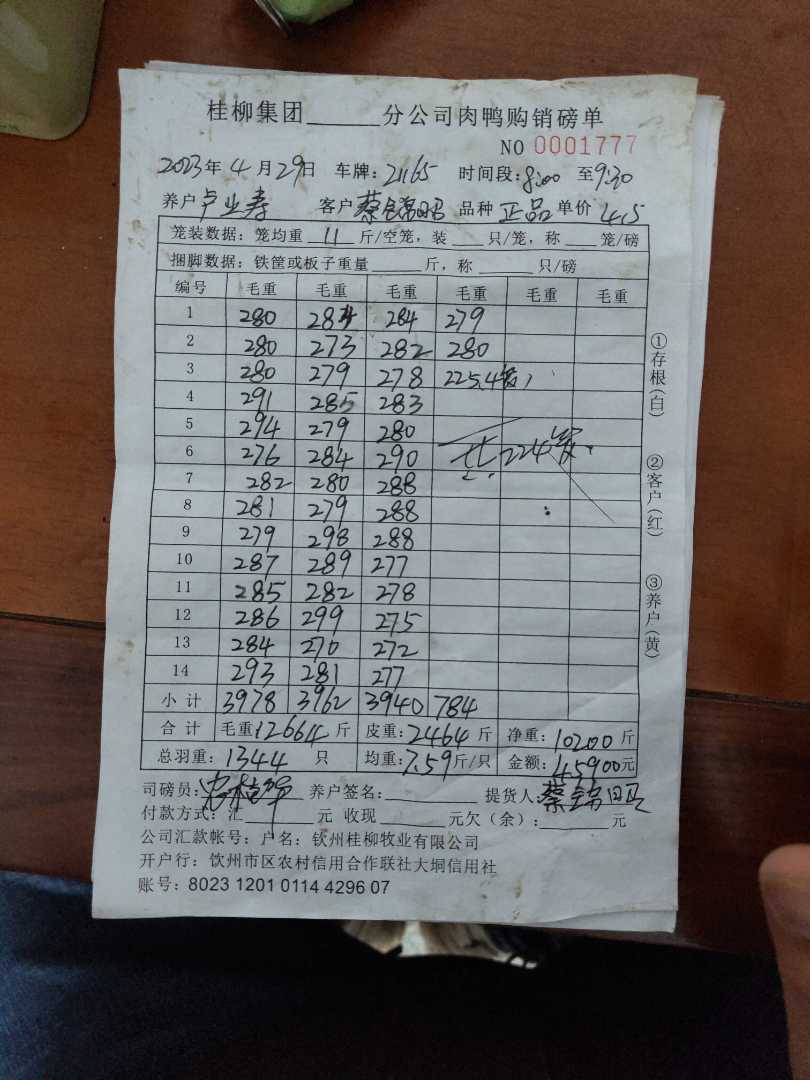 桂柳集团______分公司肉鸭购销磅单
NO 0001777
2023年 4 月 29日 车牌: 21165 时间段: 8:00 至 9:30
养户 卢业寿 客户 蔡锦昭 品种 正品 单价 4.5
笼装数据: 笼均重 11 斤/空笼, 装____只/笼, 称____笼/磅
捆脚数据: 铁筐或板子重量______斤, 称______只/磅
编号 毛重 毛重 毛重 毛重 毛重 毛重
1 280 284 284 279
2 280 273 282 280
3 280 279 278 225.4笼)
4 291 285 283
5 294 279 280
6 276 284 290 共224笼.
7 282 280 288
8 281 279 288
9 279 298 288
10 287 289 277
11 285 282 278
12 286 299 275
13 284 270 272
14 293 281 277
小计 3978 3962 3940 784
合计 毛重: 12664 斤 皮重: 2464 斤 净重: 10200 斤
总羽重: 1344 只 均重: 7.59斤/只 金额: 45900元
司磅员: 养户签名:________ 提货人: 蔡锦昭
付款方式: 汇______元 收现______元欠(余):______元
公司汇款帐号: 户名: 钦州桂柳牧业有限公司
开户行: 饮州市区农村信用合作联社大垌信用社
账号: 8023 1201 0114 4296 07
①存根(白)
②客户(红)
③养户(黄)